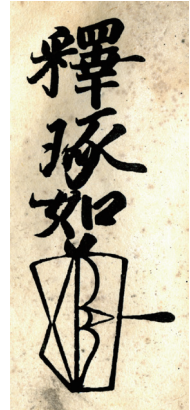 釋琢如